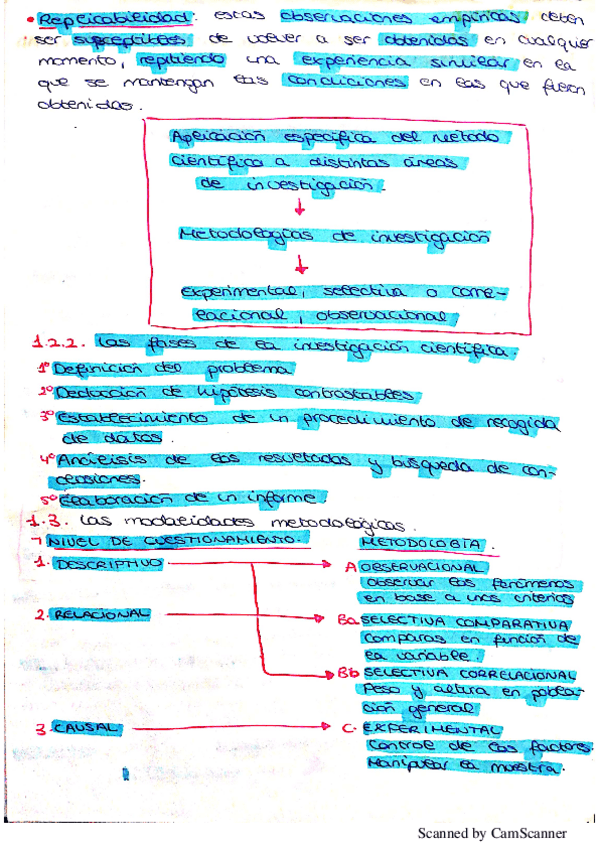 • Replicabilidad: estas observaciones empíricas deben
ser susceptibles de volver a ser obtenidas en cualquier
momento, repitiendo una experiencia similar en la
que se mantengan las condiciones en las que fueron
obtenidas.
Aplicación específica del método
científico a distintas áreas
de investigación.
↓
Metodologías de investigación
↓
experimental, selectiva o corre-
lacional, observacional
1.2.2. Las fases de la investigación científica.
1º Definición del problema
2º Deducción de hipótesis contrastables
3º Establecimiento de un procedimiento de recogida
de datos.
4º Análisis de los resultados y búsqueda de con-
clusiones.
5º Elaboración de un informe.
1.3. Las modalidades metodológicas.
NIVEL DE CUESTIONAMIENTO. METODOLOGÍA.
1. DESCRIPTIVO → A OBSERVACIONAL
Observar los fenómenos
en base a unos criterios
2. RELACIONAL → Ba SELECTIVA COMPARATIVA
Comparas en función de
la variable.
Bb SELECTIVA CORRELACIONAL
Peso y altura en pobla-
ción general
3. CAUSAL → C. EXPERIMENTAL
Control de los factores.
Manipular la muestra.
Scanned by CamScanner